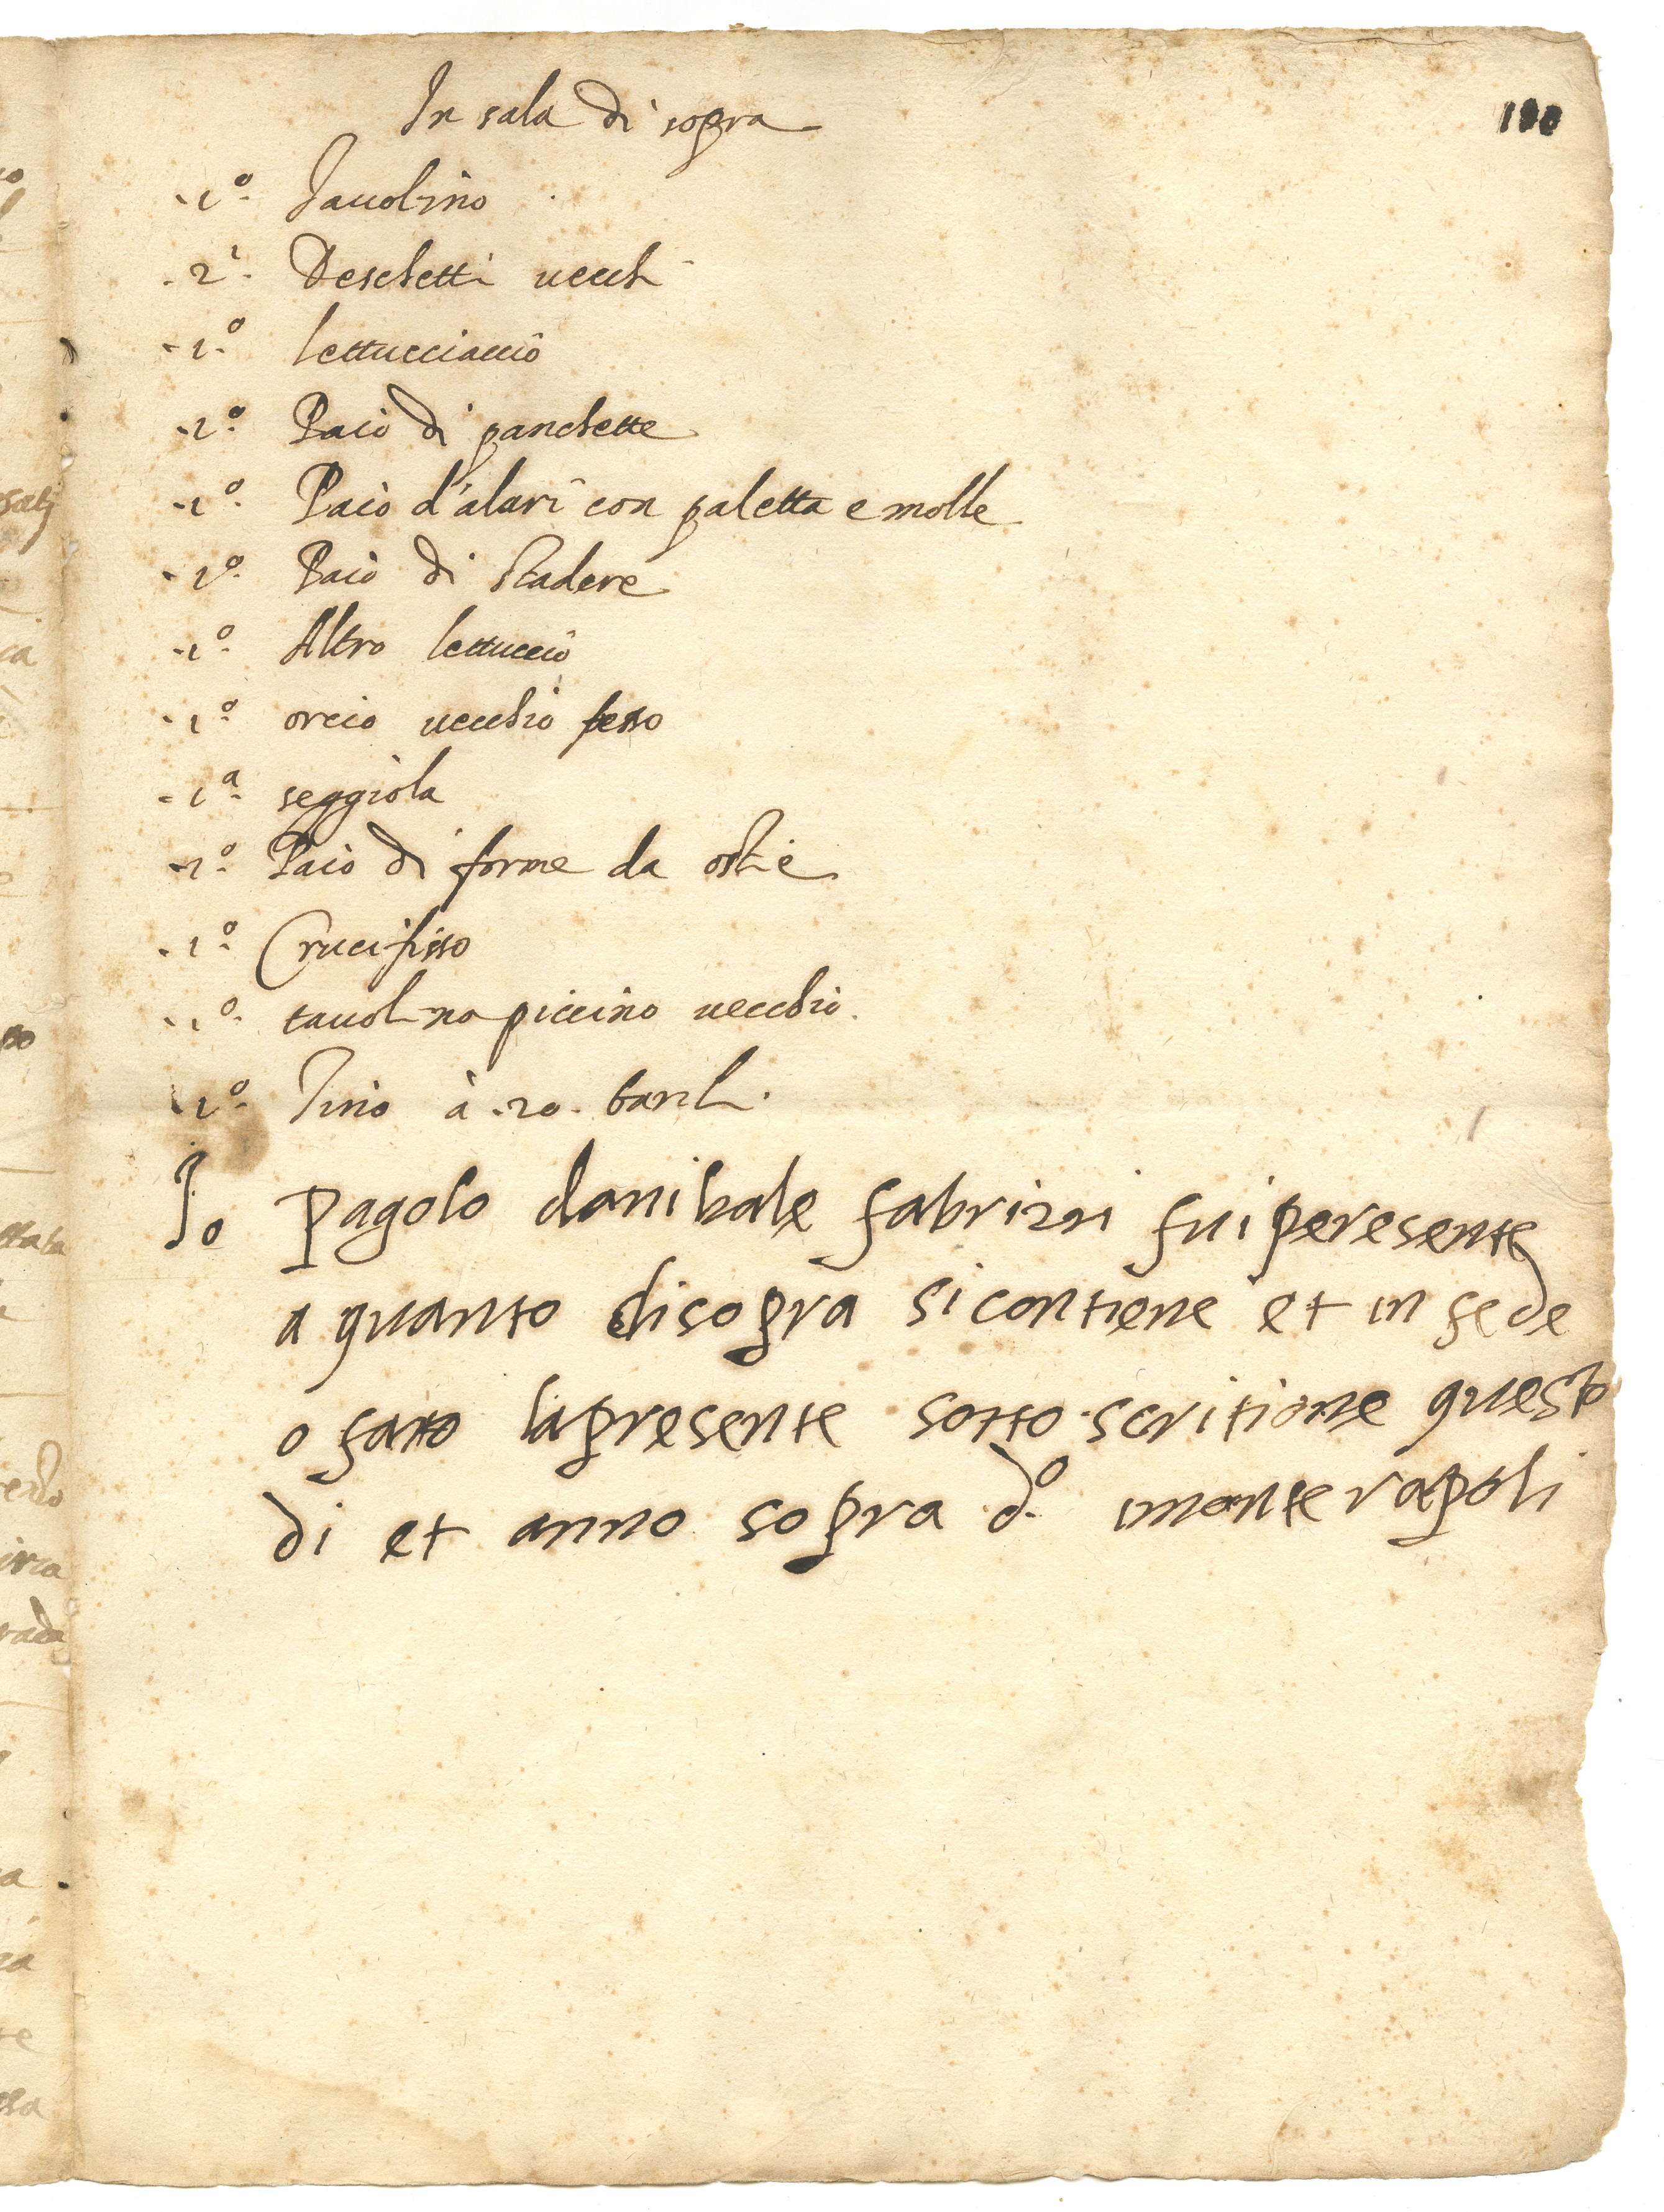 In sala di sopra
-1º- Tauolino
-2i- Deschetti uecchi
-1º- lettucciaccio
-1º- Paio di panchette
-1º- Paio d'alari con paletta e molle
-1º- Paio di stadere
-1º- Altro lettuccio
-1º- orcio uecchio fesso
-1ª- seggiola
-1º- Paio di forme da ostie
-1º- Crucifisso
-1º- tauolino piccino uecchio.
-1º- Tino à -20- barili.
Io pagolo danibale fabrizzi fui peresente
a quanto disopra si contiene et in fede
o fatto la presente sotto scritione questo
di et anno sopra d.º monterapoli